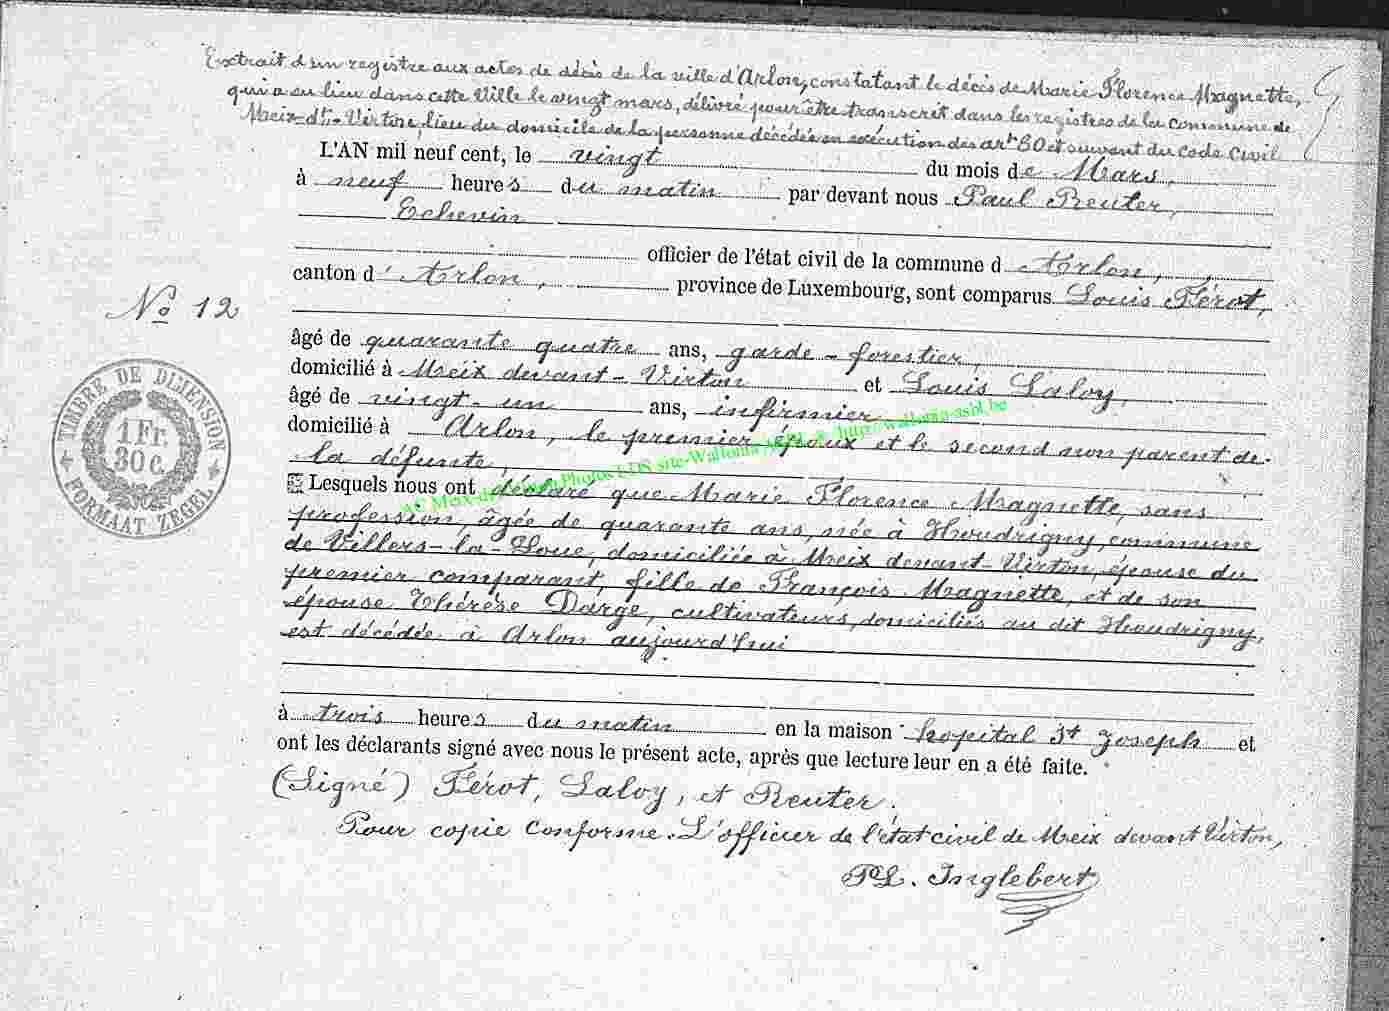 Extrait d'un registre aux actes de décès de la ville d'Arlon, constatant le décès de Marie Florence Magnette,
qui a eu lieu dans cette Ville le vingt mars, délivré pour être transcrit dans les registres de la commune de
Meix-dt-Virton, lieu du domicile de la personne décédée en exécution des art 80 et suivant du Code Civil
L'AN mil neuf cent, le vingt du mois de Mars,
à neuf heures du matin par devant nous Paul Reuter,
Echevin
officier de l'état civil de la commune d Arlon,
canton d'Arlon, province de Luxembourg, sont comparus Louis Férot,
No 12
âgé de quarante quatre ans, garde-forestier,
domicilié à Meix devant-Virton et Louis Laloy,
âgé de vingt-un ans, infirmier
domicilié à Arlon, le premier époux et le second non parent de
la défunte,
Lesquels nous ont déclaré que Marie Florence Magnette, sans
profession, âgée de quarante ans, née à Houdrigny, commune
de Villers-la-Loue, domiciliée à Meix devant-Virton, épouse du
premier comparant, fille de François Magnette, et de son
épouse Thérèse Darge, cultivateurs, domiciliés au dit Houdrigny,
est décédée à Arlon aujourd'hui
à trois heures du matin en la maison hopital St Joseph et
ont les déclarants signé avec nous le présent acte, après que lecture leur en a été faite.
(Signé) Férot, Laloy, et Reuter.
Pour copie conforme. L'officier de l'état civil de Meix devant Virton,
PL. Inglebert
TIMBRE DE DIMENSION
1 Fr.
30 c.
FORMAAT ZEGEL